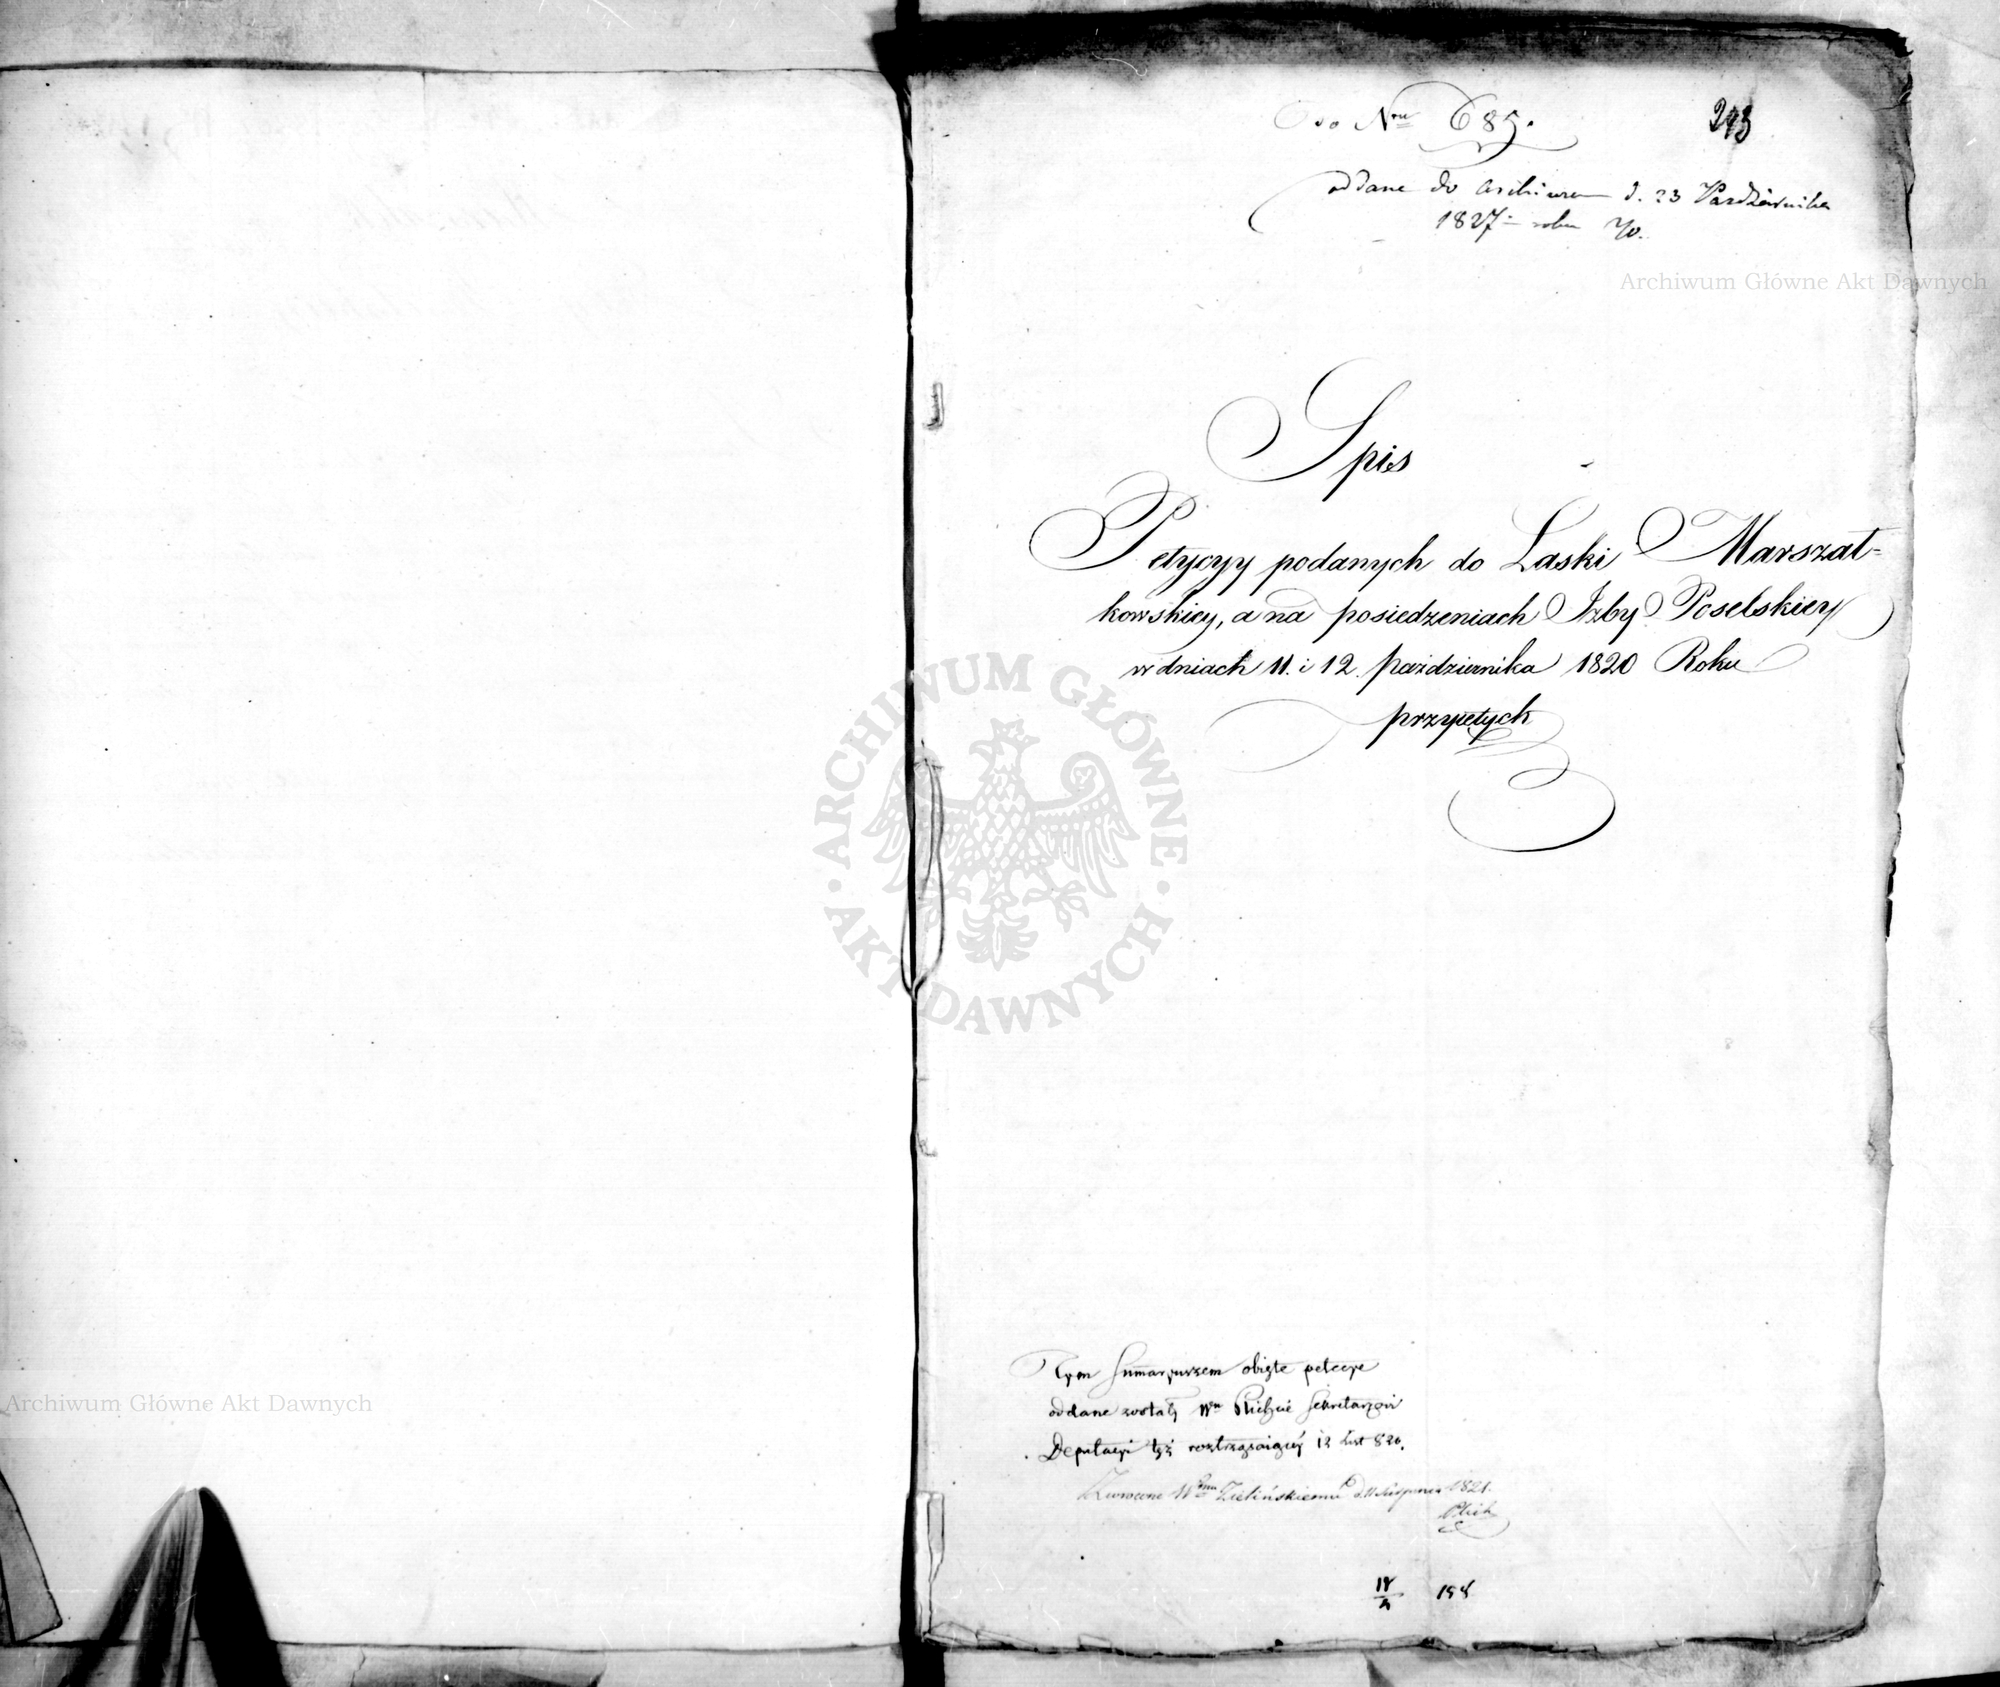 Do Nru 685.
243
oddane do Archiwum d. 23 Pazdziernika
1827 roku
Archiwum Główne Akt Dawnych
Spis
Petycyy podanych do Laski Marszał=
kowskiey, a na posiedzeniach Izby Poselskiey
w dniach 11. i 12. października 1820 Roku
przyjętych
ARCHIWUM GŁÓWNE
AKT DAWNYCH
Tym Sumaryuszem objęte petycye
oddane zostały Wu Sekretarzowi
Deputacyi też roztrząsaiącéy 12 List 820.
Archiwum Główne Akt Dawnych
Zwrócone Zielińskiemu d. 11 Sierpnia 1821.
Plich